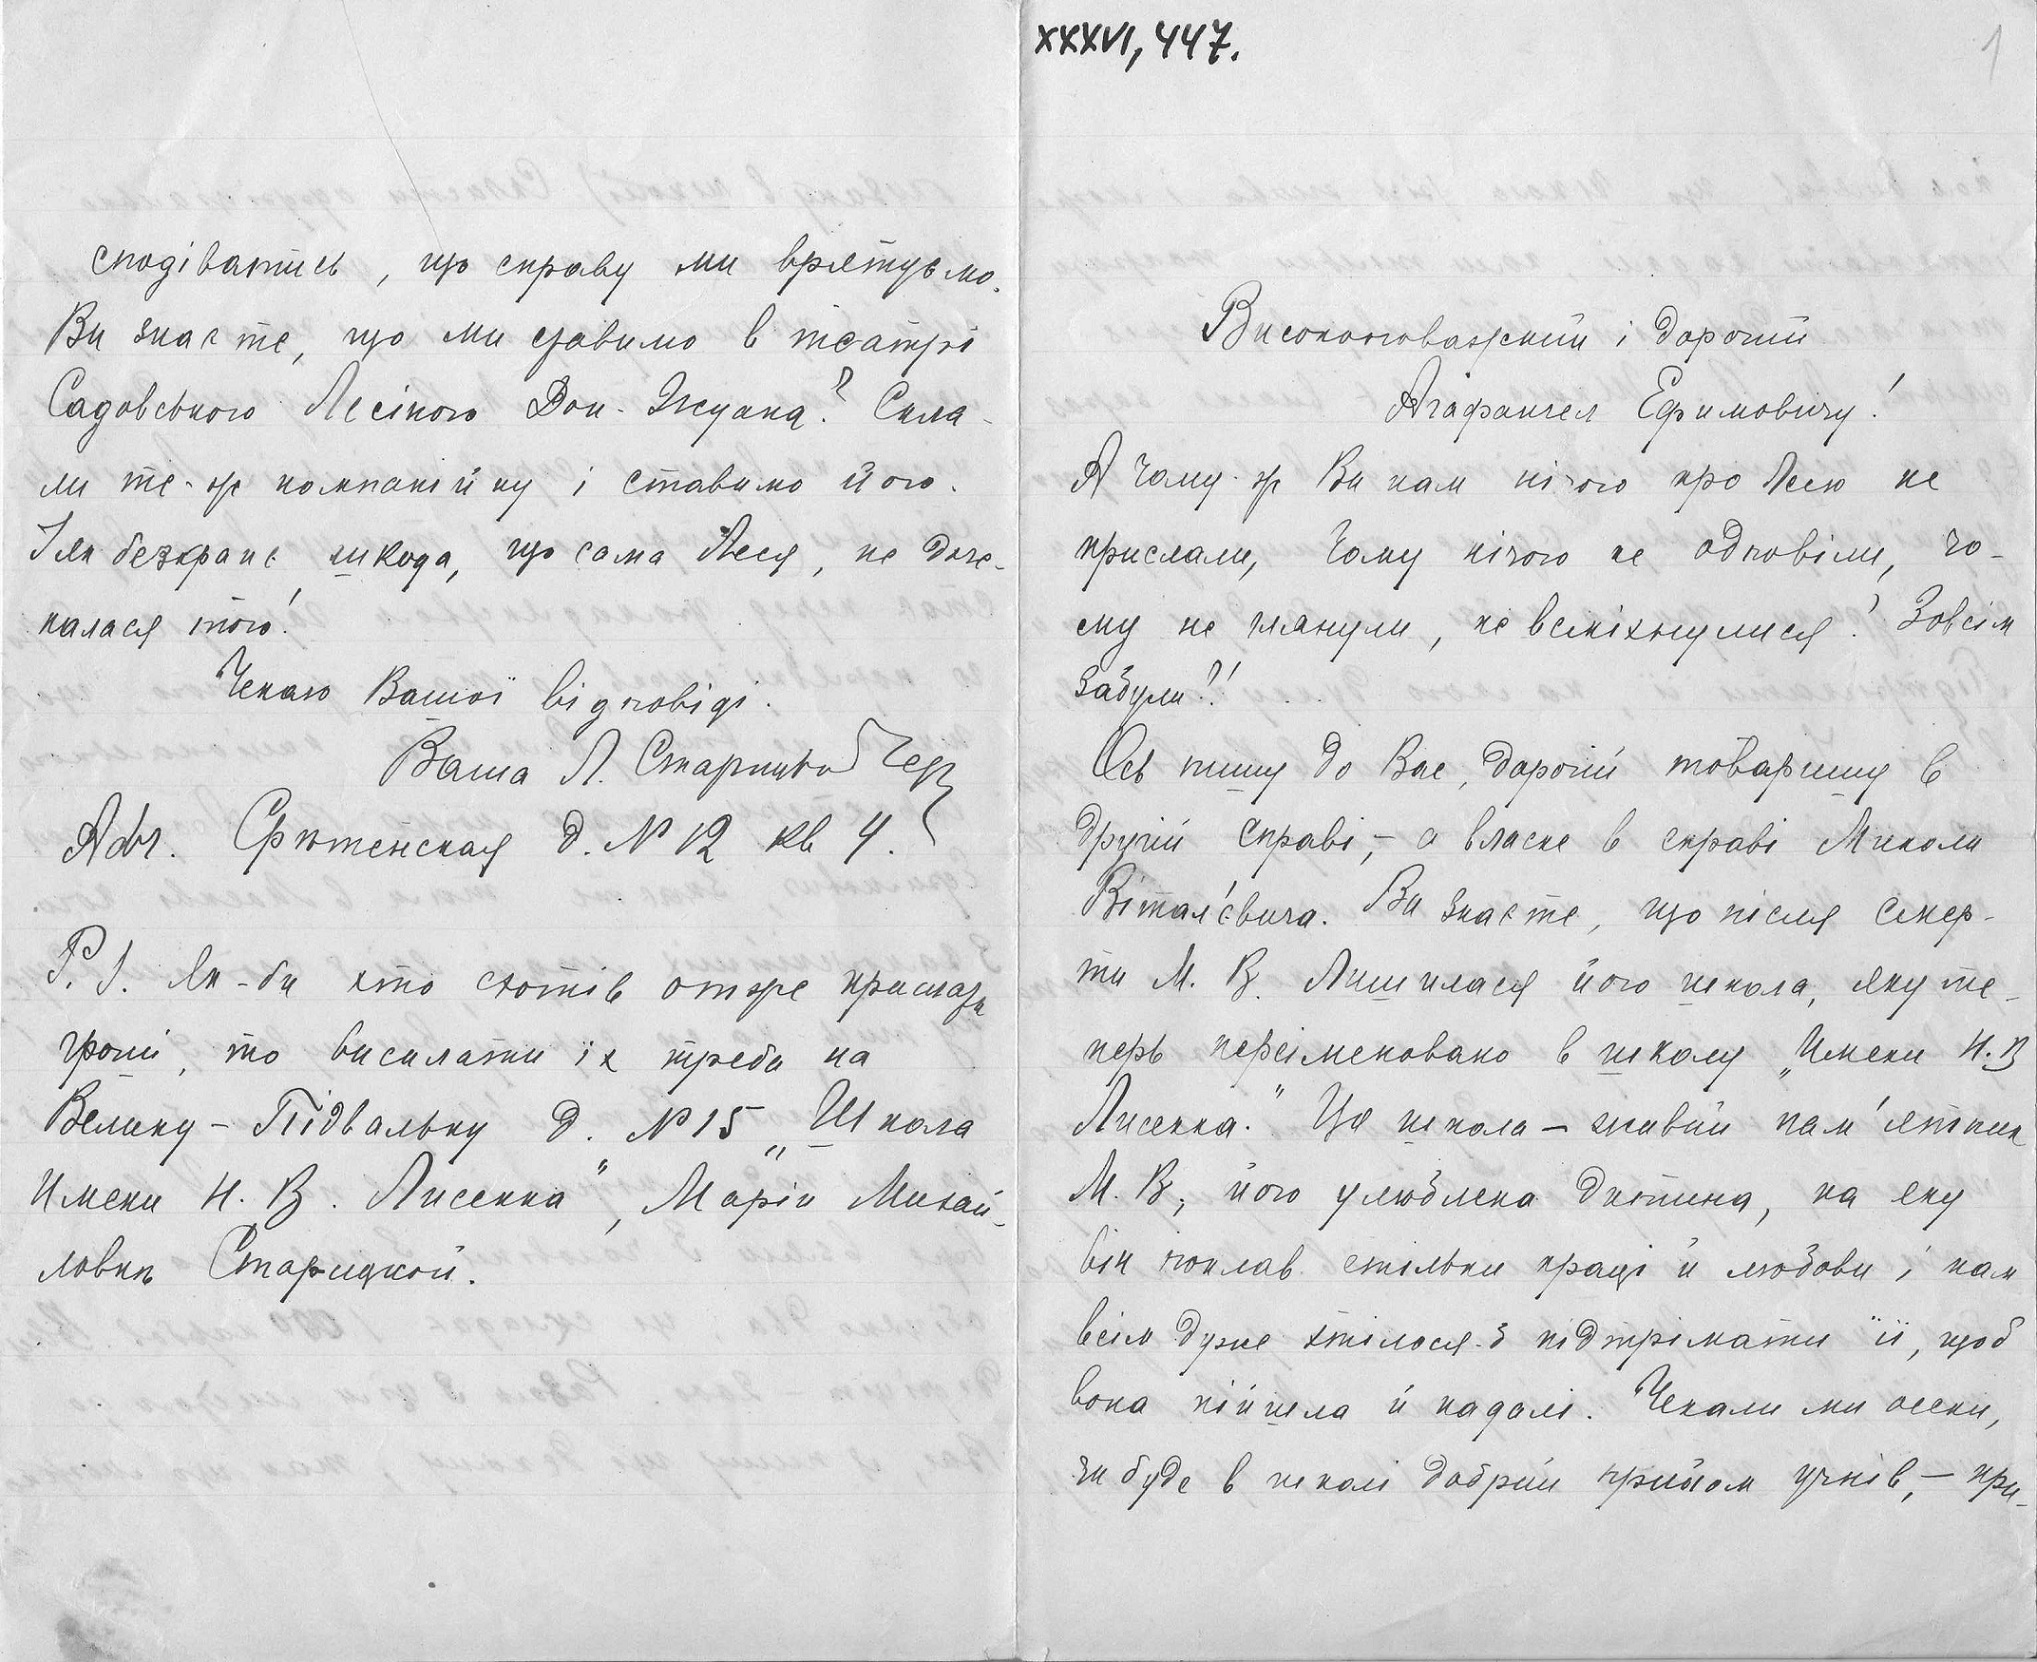 XXXVI, 447.
1
Високоповажний і дорогий
Агафангел Ефимовичу!
А чому-ж Ви нам нічого про Лесю не
прислали, чому нічого не одповіли, чо-
му не глянули, не всміхнулися? Зовсім
забули?!
Ось пишу до Вас, дорогий товаришу в
другій справі, – а власне в справі Миколи
Віталієвича. Ви знаєте, що після смер-
ти М. В. лишилася його школа, яку те-
перь переіменовано в школу „Имени Н. В
Лисенка." Ця школа – живий пам'ятник
М. В., його улюблена дитина, на яку
він поклав стільки праці й любови і нам
всім дуже хтілося-б підтрімати її, щоб
вона пійшла й надалі. Чекали ми осени,
чи буде в школі добрий прийом учнів, – при-
сподіватись, що справу ми врятуємо.
Ви знаєте, що ми ставимо в театрі
Садовського Лесіного Дон-Жуана? Скла-
ли те-ж компанійку і ставимо його.
І як безкрає шкода, що сама Леся, не доче-
калася того!
Чекаю Вашої відповіді.
Ваша Л. Старицька Чер
Адр. Срѣтенская д. № 12 кв 4.
P. S. Як-би хто схотів отже прислать
гроші, то висилати їх треба на
Велику-Підвальну д. № 15 „Школа
Имени Н. В. Лисенка", Маріи Михай-
ловнѣ Старицкой.